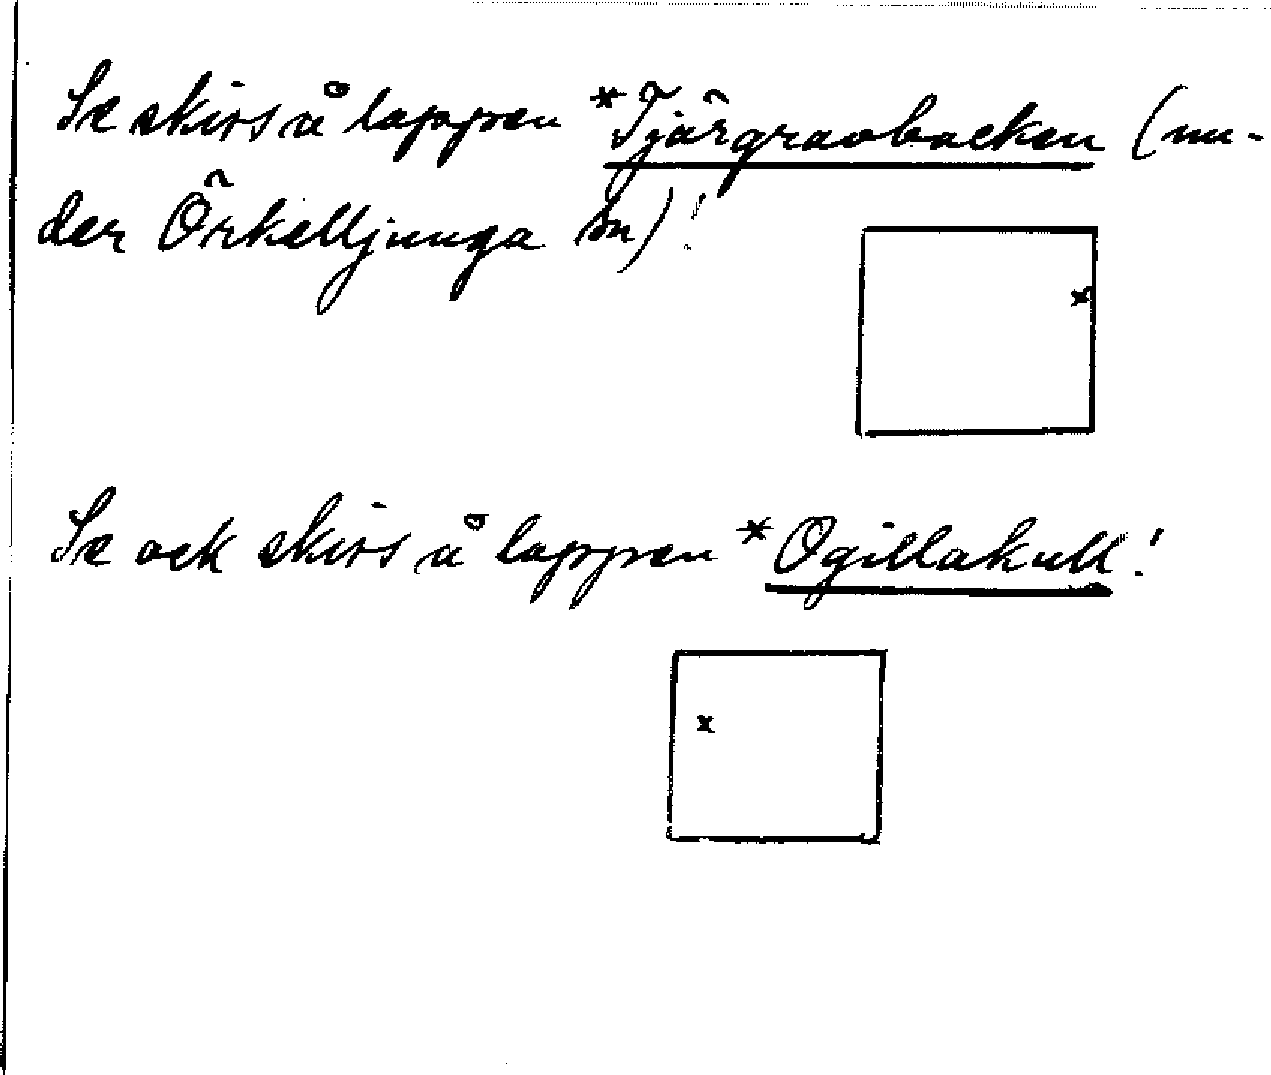 Se skiss å lappen *Tjärgravbacken (un-
der Örkelljunga sn)!
Se ock skiss å lappen *Ogillakull!